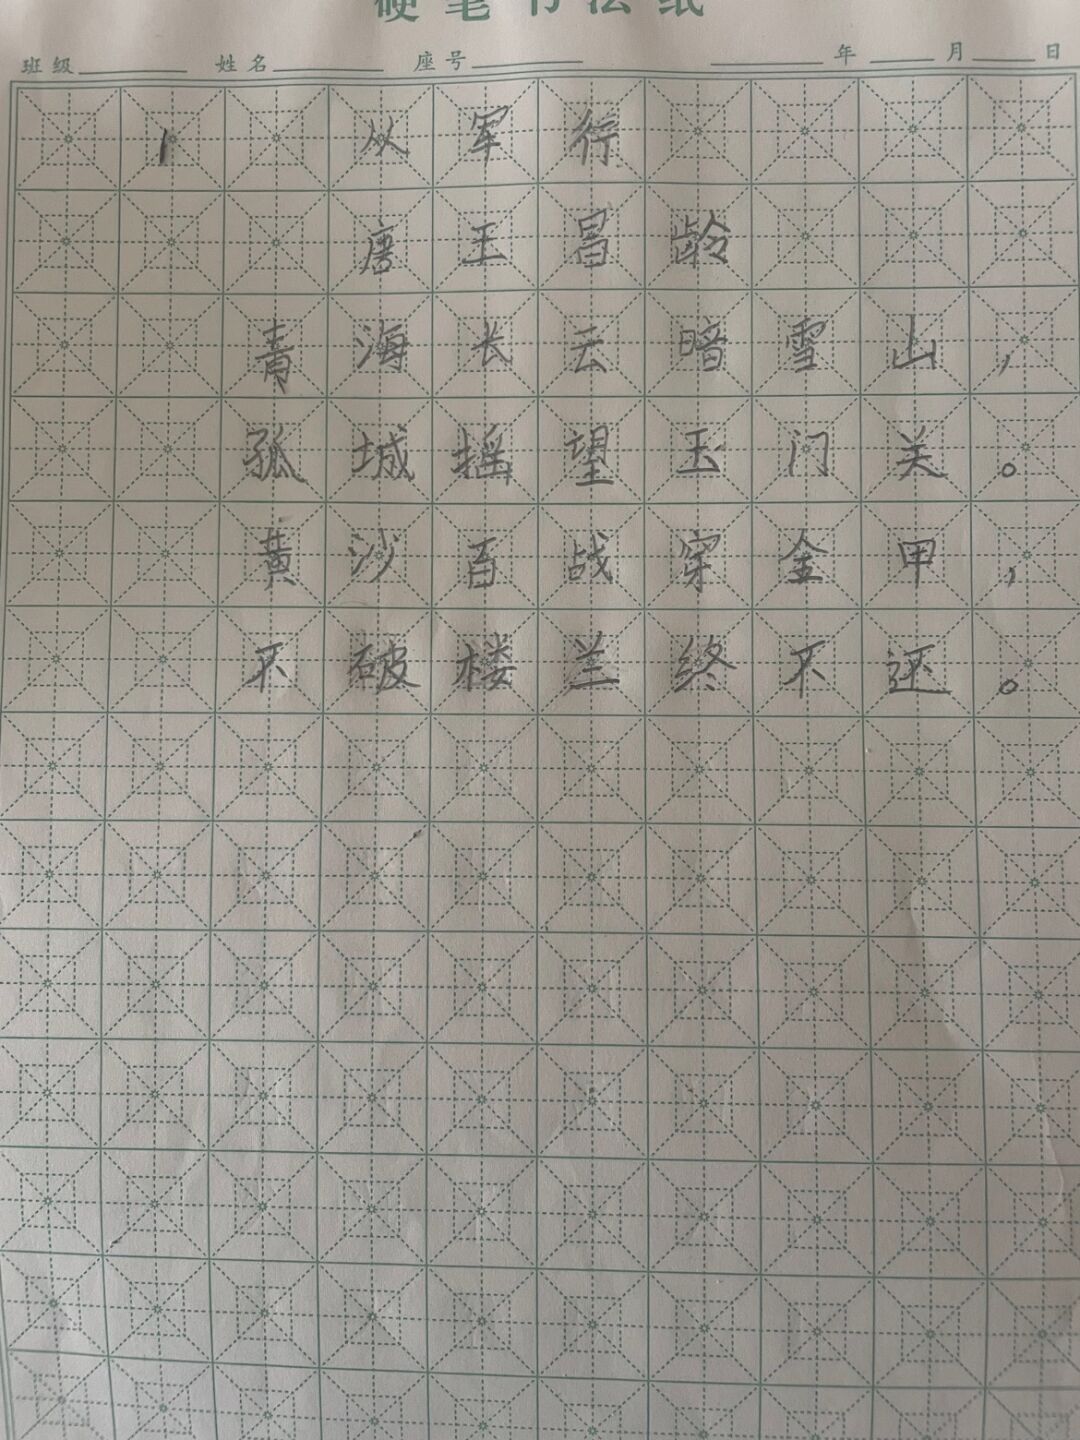 硬笔书法纸
班级 姓名 座号 年 月 日
1 从军行
唐王昌龄
青海长云暗雪山，
孤城摇望玉门关。
黄沙百战穿金甲，
不破楼兰终不还。